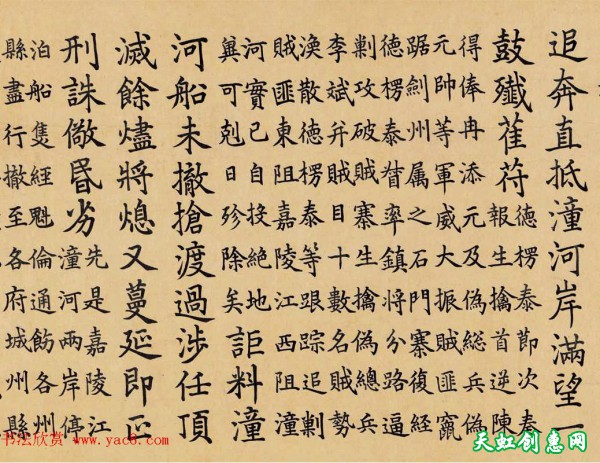 追奔直抵潼河岸滿望一
鼓殲萑苻德楞泰節次奏
報生擒首逆陳
得俸冉添元及偽總兵偽
元帥等軍威大振賊匪竄
踞劍州属之石門寨復經
德楞泰督率鎮將分路逼
剿攻破賊寨生擒偽總兵
李斌并賊目十數名賊勢
渙散德楞泰等跟踪追剿
賊匪東阻嘉陵江西阻潼
河實已自投絕地
冀可剋日殄除矣詎料潼
河船未撤搶渡過涉任頂
滅餘燼將熄又蔓延即正
刑誅儆昬劣先是嘉陵江
潼河兩岸停
泊船隻經魁倫通飭各州
縣盡行撤至各府城州縣
书法欣赏 www.yac8.com
天虹创惠网